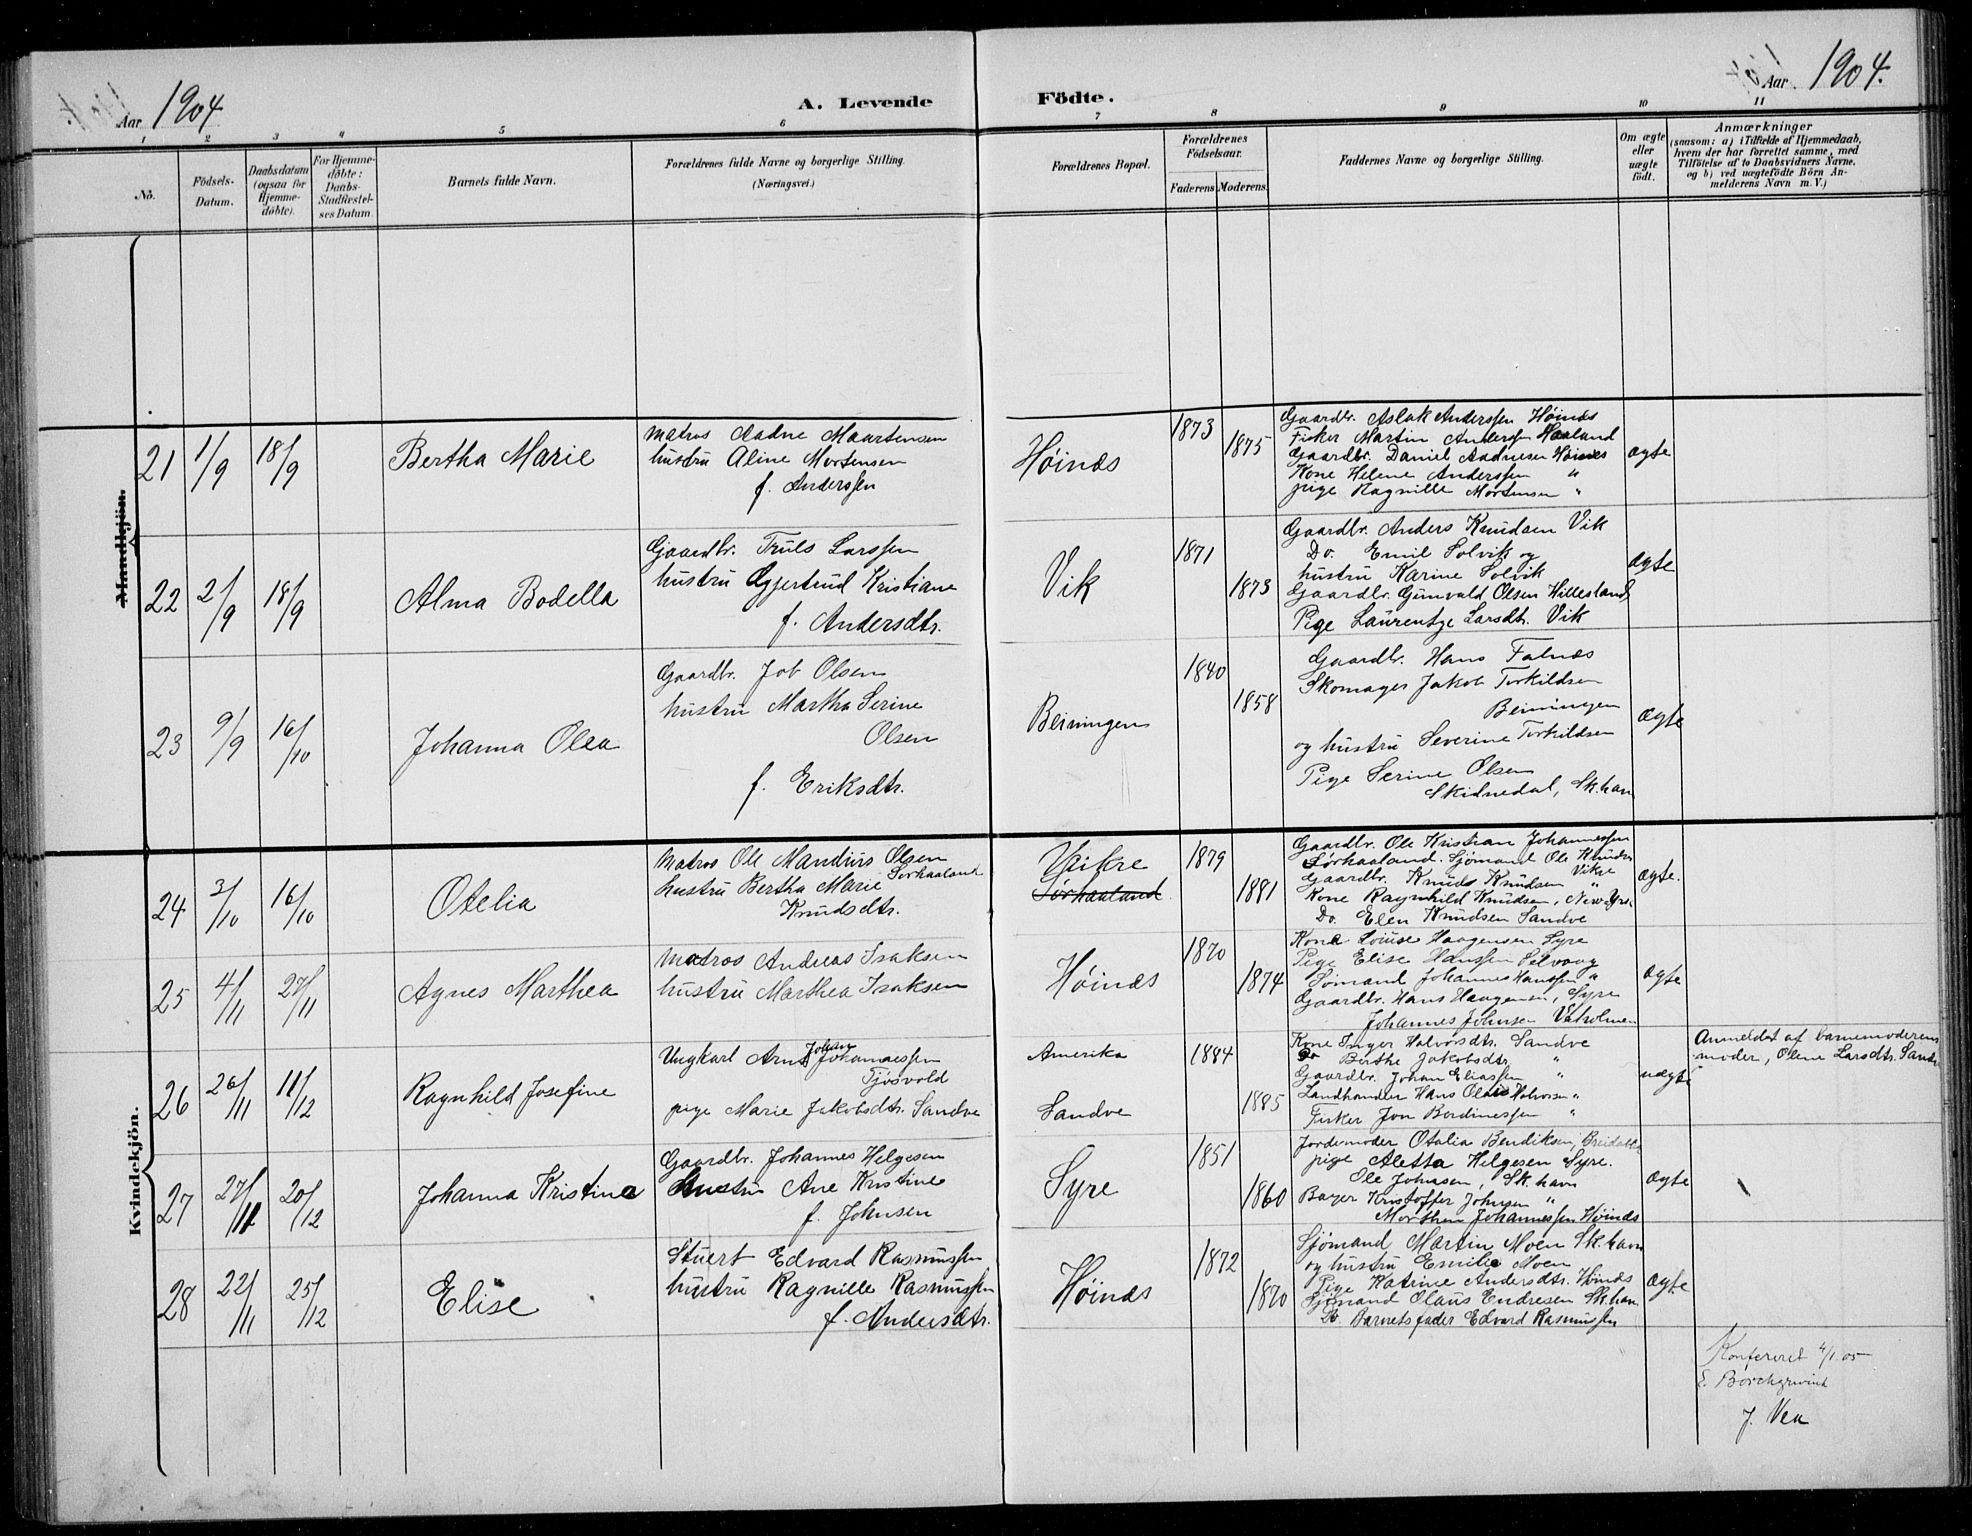 Aar 1904
A. Levende Födte.
Aar 1904.
1 2 3 4 5 6 7 8 9 10 11
No.
Födsels-Datum.
Daabsdatum (ogsaa for Hjemme-döbte).
For Hjemme-döbte: Daabs-Stadfæstel-ses Datum.
Barnets fulde Navn.
Forældrenes fulde Navne og borgerlige Stilling.
(Næringsvei.)
Forældrenes Bopæl.
Forældrenes Födselsaar.
Faderens Moderens.
Faddernes Navne og borgerlige Stilling.
Om ægte eller uægte födt.
Anmærkninger
(saasom: a) i Tilfælde af Hjemmedaab,
hvem der har forrettet samme, med
Tilföielse af to Daabsvidners Navne,
og b) ved uægtefödte Börn An-
melderens Navn m. V.)
Mandkjön.
21 1/9 18/9 Bertha Marie
Matros Aadne Maartensen
hustru Aline Mortensen
f. Anderssen
Höinæs
1873
1875
Gaardbr. Aslak Anderssen Höinæs
Fisker Martin Anderssen Haaland
Gaardbr. Daniel Aadnesen Höinæs
Kone Helene Anderssen "
pige Ragnille Mortensen "
ægte
22 2/9 18/9 Alma Bodella
Gjaardbr. Truls Larssen
hustru Eggertrud Kristiane
f. Andersdtr.
Vik
1871
1873
Gaardbr. Anders Knudsen Vik
Do. Emil Solvik og
hustru Karine Solvik
Gaardbr. Gunvald Olsen Hillesland
Pige Laurentze Larsdtr. Vik
ægte
23 9/9 16/10 Johanna Olea
Gaardbr. Job Olsen
hustru Martha Serine
Olsen
f. Eriksdtr.
Beiningen
1840
1858
Gaardbr. Hans Falnæs
Skomager Jakob Torkildsen
Beiningen
og hustru Severine Torkildsen
Pige Serine Olsen
Skidnedal, Sk.havn
ægte
Kvindekjön.
24 3/10 16/10 Otelia
Matros Ole Mandius Olsen
Sörhaaland
hustru Bertha Marie
Knudsdtr.
Vikre
Sörhaaland
1879
1881
Gaardbr. Ole Kristian Johannessen
Sörhaaland. Sjömand Ole Knudsen
Gaardbr. Knud Knudsen Vikre
Kone Ragnhild Knudsen,
Do. Elen Knudsen Sandve
ægte.
25 4/11 27/11 Agnes Marthea
Matros Andreas Isaksen
hustru Marthea Isaksen
Höinæs
1870
1874
Kone Louise Haagensen Syre
Pige Elise Hanssen Selvaag
Sömand Johannes Hanssen "
Gaardbr. Hans Haagensen, Syre
Johannes Johnsen Vaholmen
ægte
26 26/11 11/12 Ragnhild Josefine
Ungkarl Arnt Johan Johannessen
Tjösvold
pige Marie Jakobsdtr. Sandve
Amerika
Sandve
1884
1885
Kone Inger Halvorsdtr. Sandve
Do Berthe Jakobsdtr. "
Gaardbr. Johan Eliassen "
Landhandler Hans Olaus Halvorsen "
Fisker Jon Berdinessen "
uægte
Anmeldt af barnemoderens
moder, Olene Larsdtr. Sandve
27 27/11 20/12 Johanna Kristine
Gaardbr. Johannes Helgesen
Hustru Ane Kristine
f. Johnsen
Syre
1851
1860
Jordemoder Otalia Bendiksen,
pige Aletta Helgesen Syre.
Ole Johnsen, Sk.havn
Bager Kristoffer Johnsen "
Morthen Johannessen Höinæs
ægte
28 22/11 25/12 Elise
Stuert Edvard Rasmussen
hustru Ragnille Rasmussen
f. Andersdtr.
Höinæs
1872
1870
Sjömand Martin Moen Sk.havn
og hustru Emilie Moen
Pige Katrine Andersdtr. Höinæs
Sjömand Olaus Endresen Sk.havn
Do. Barnets fader Edvard Rasmussen
ægte
Konfereret 4/1.05
E. Borchgrevink
J. Vea